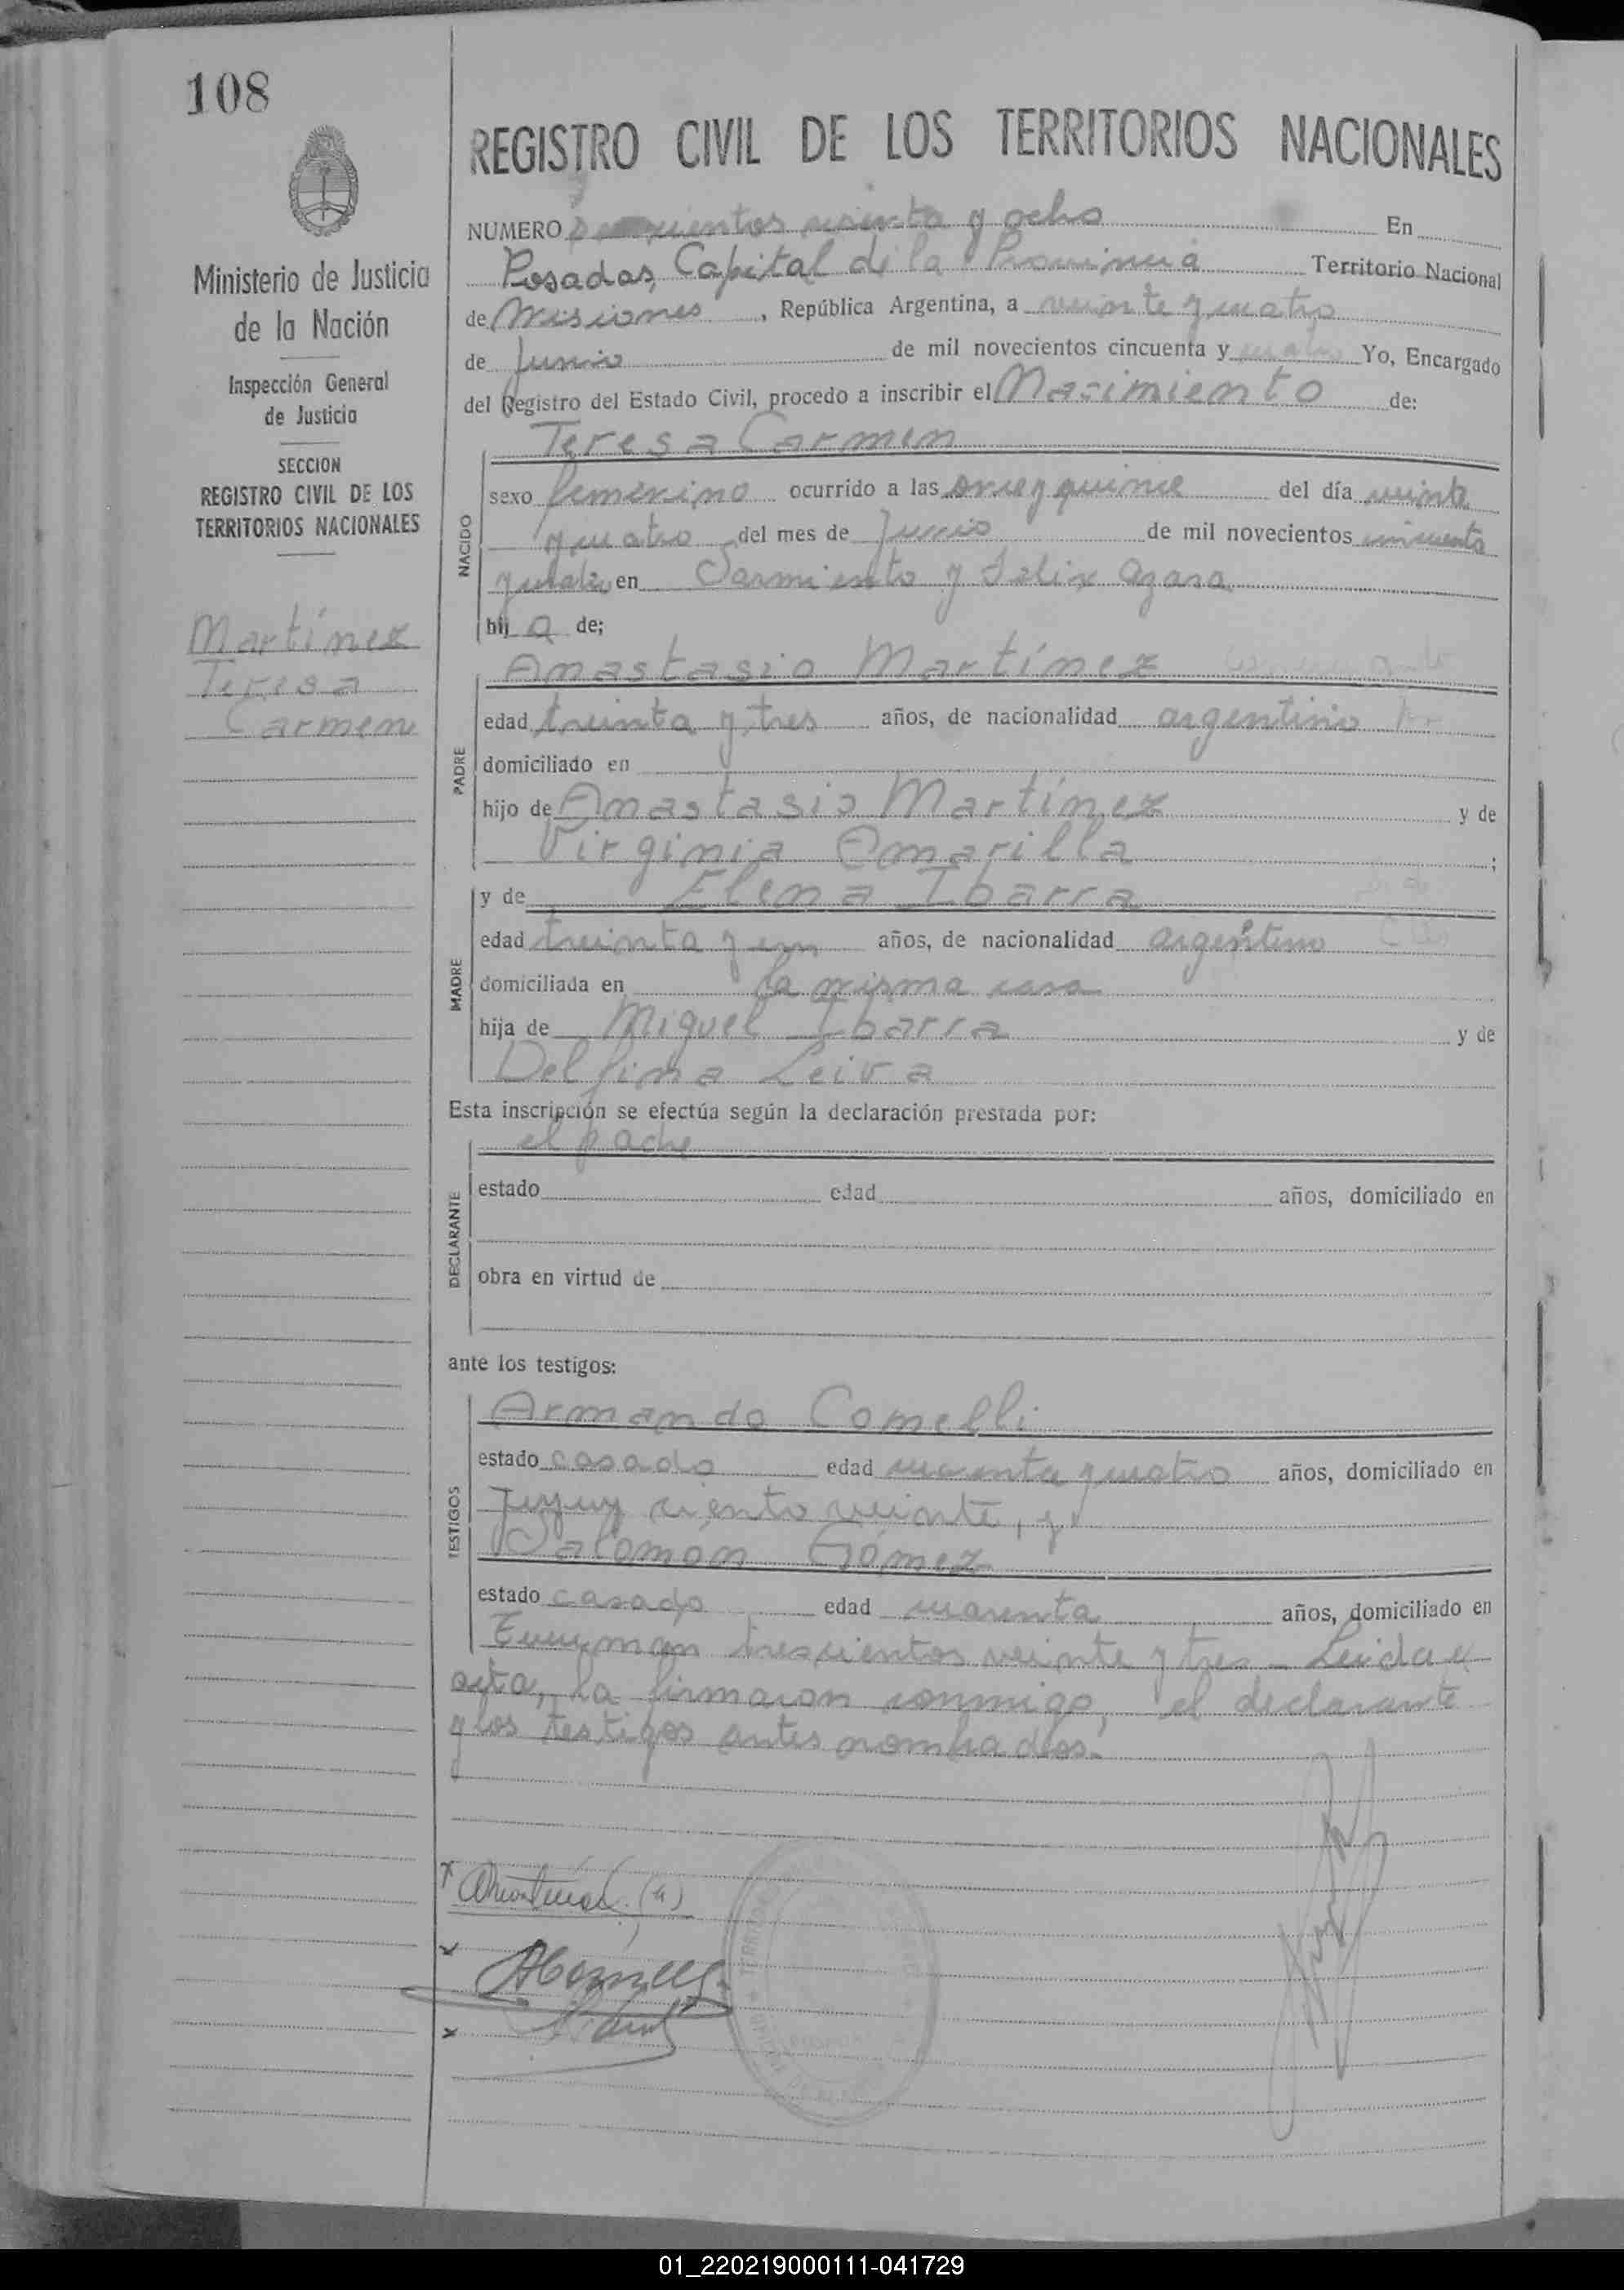 108
REGISTRO CIVIL DE LOS TERRITORIOS NACIONALES
Ministerio de Justicia
de la Nación
Inspección General
de Justicia
SECCION
REGISTRO CIVIL DE LOS
TERRITORIOS NACIONALES
Martínez
Teresa
Carmen
NUMERO y ocho En
Posadas, Capital de la Provincia Territorio Nacional
de Misiones, República Argentina, a veinte y cuatro
de Junio de mil novecientos cincuenta y cuatro Yo, Encargado
del Registro del Estado Civil, procedo a inscribir el Nacimiento de:
Teresa Carmen
NACIDO
sexo femenino ocurrido a las once y quince del día veinte
y cuatro del mes de Junio de mil novecientos cincuenta
y cuatro en Sarmiento y Felix Azara
hij a de;
Anastasio Martínez
PADRE
edad treinta y tres años, de nacionalidad argentino
domiciliado en
hijo de Anastasio Martínez y de
Virginia Amarilla;
y de Elena Ibarra
MADRE
edad treinta y un años, de nacionalidad argentina
domiciliada en la misma casa
hija de Miguel Ibarra y de
Delfina Leiva
Esta inscripción se efectúa según la declaración prestada por:
el padre
DECLARANTE
estado edad años, domiciliado en
obra en virtud de
ante los testigos:
Armando Comelli
TESTIGOS
estado casado edad cuarenta y cuatro años, domiciliado en
Jujuy ciento veinte, y
Salomón Gómez
estado casado edad cuarenta años, domiciliado en
Tucumán trescientos veinte y tres - Leida el
acta, la firmaron conmigo, el declarante
y los testigos antes nombrados.-
01_220219000111-041729